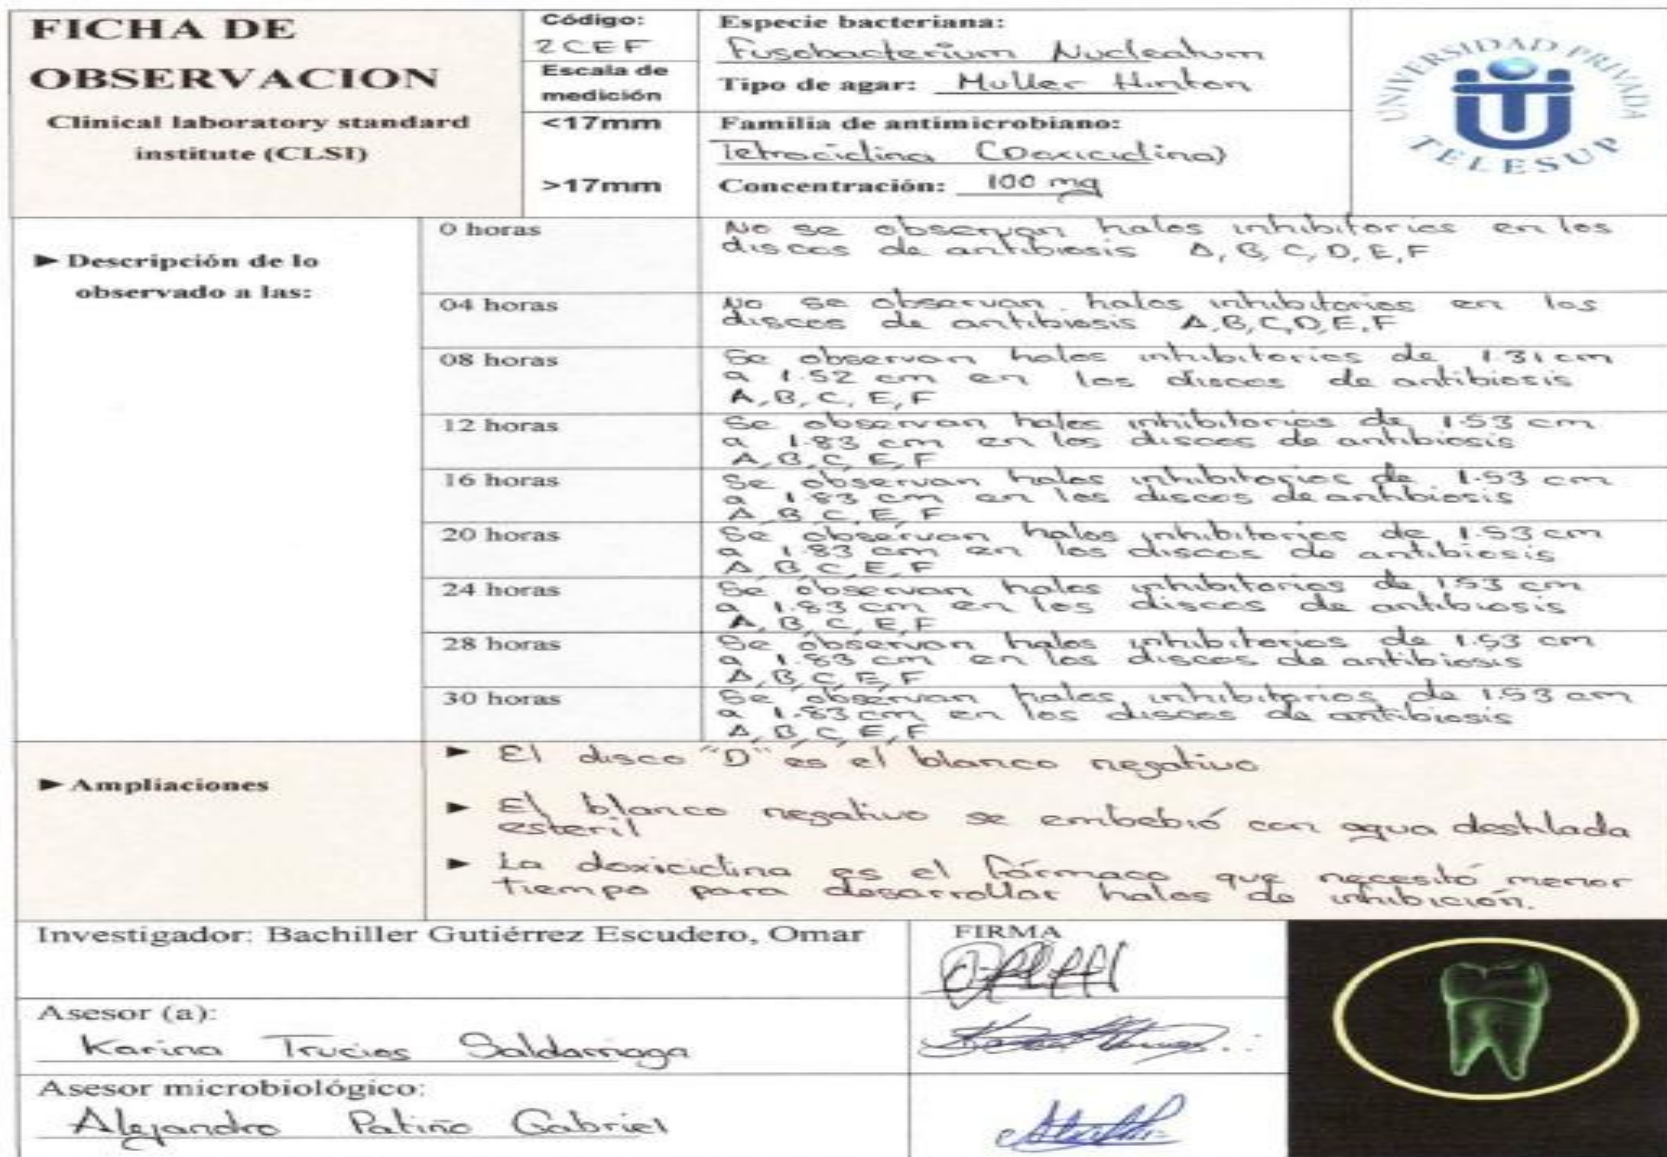 FICHA DE
OBSERVACION
Clinical laboratory standard
institute (CLSI)
Código:
2CEF
Escala de
medición
<17mm
>17mm
Especie bacteriana:
Fusobacterium Nucleatum
Tipo de agar: Muller Hinton
Familia de antimicrobiano:
Tetraciclina (Doxiciclina)
Concentración: 100 mg
UNIVERSIDAD PRIVADA
TELESUP
► Descripción de lo
observado a las:
0 horas
No se observan halos inhibitorios en los
discos de antibiosis A, B, C, D, E, F
04 horas
No se observan halos inhibitorios en los
discos de antibiosis A, B, C, D, E, F
08 horas
Se observan halos inhibitorios de 1.31 cm
a 1.52 cm en los discos de antibiosis
A, B, C, E, F
12 horas
Se observan halos inhibitorios de 1.53 cm
a 1.83 cm en los discos de antibiosis
A, B, C, E, F
16 horas
Se observan halos inhibitorios de 1.53 cm
a 1.83 cm en los discos de antibiosis
A, B, C, E, F
20 horas
Se observan halos inhibitorios de 1.53 cm
a 1.83 cm en los discos de antibiosis
A, B, C, E, F
24 horas
Se observan halos inhibitorios de 1.53 cm
a 1.83 cm en los discos de antibiosis
A, B, C, E, F
28 horas
Se observan halos inhibitorios de 1.53 cm
a 1.83 cm en los discos de antibiosis
A, B, C, E, F
30 horas
Se observan halos inhibitorios de 1.53 cm
a 1.83 cm en los discos de antibiosis
A, B, C, E, F
► Ampliaciones
► El disco "D" es el blanco negativo
► El blanco negativo se embebió con agua destilada
esteril
► La doxiciclina es el fármaco que necesitó menor
tiempo para desarrollar halos de inhibición.
Investigador: Bachiller Gutiérrez Escudero, Omar
FIRMA
Asesor (a):
Karina Trucios Saldarriaga
Asesor microbiológico:
Alejandro Patiño Gabriel